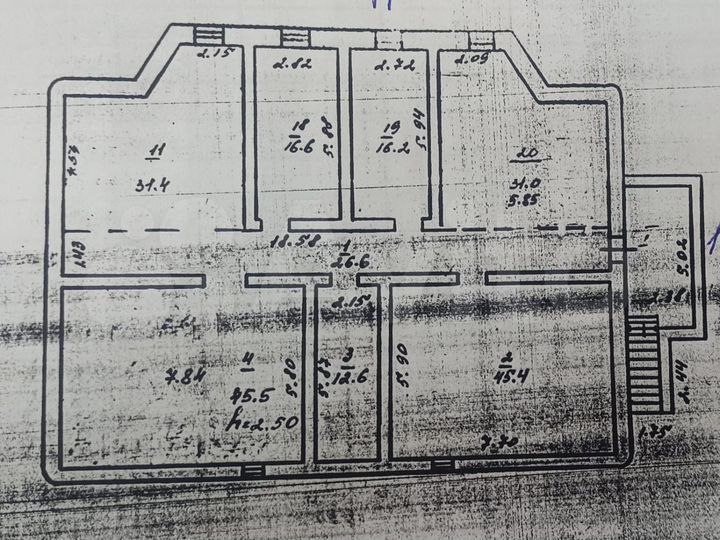 2.15
2.82
2.72
2.09
18
16.6
5.88
19
16.2
5.94
11
31.4
20
31.0
5.85
1.43
18.58
1
26.6
5.02
2.15
7.84
4
45.5
h=2.50
5.80
3
12.6
5.90
2
45.4
7.70
2.44
1.75